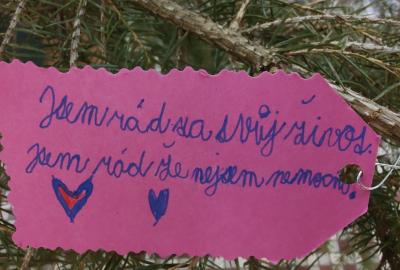 Jsem rád za svůj život.
Jsem rád že nejsem nemocní.